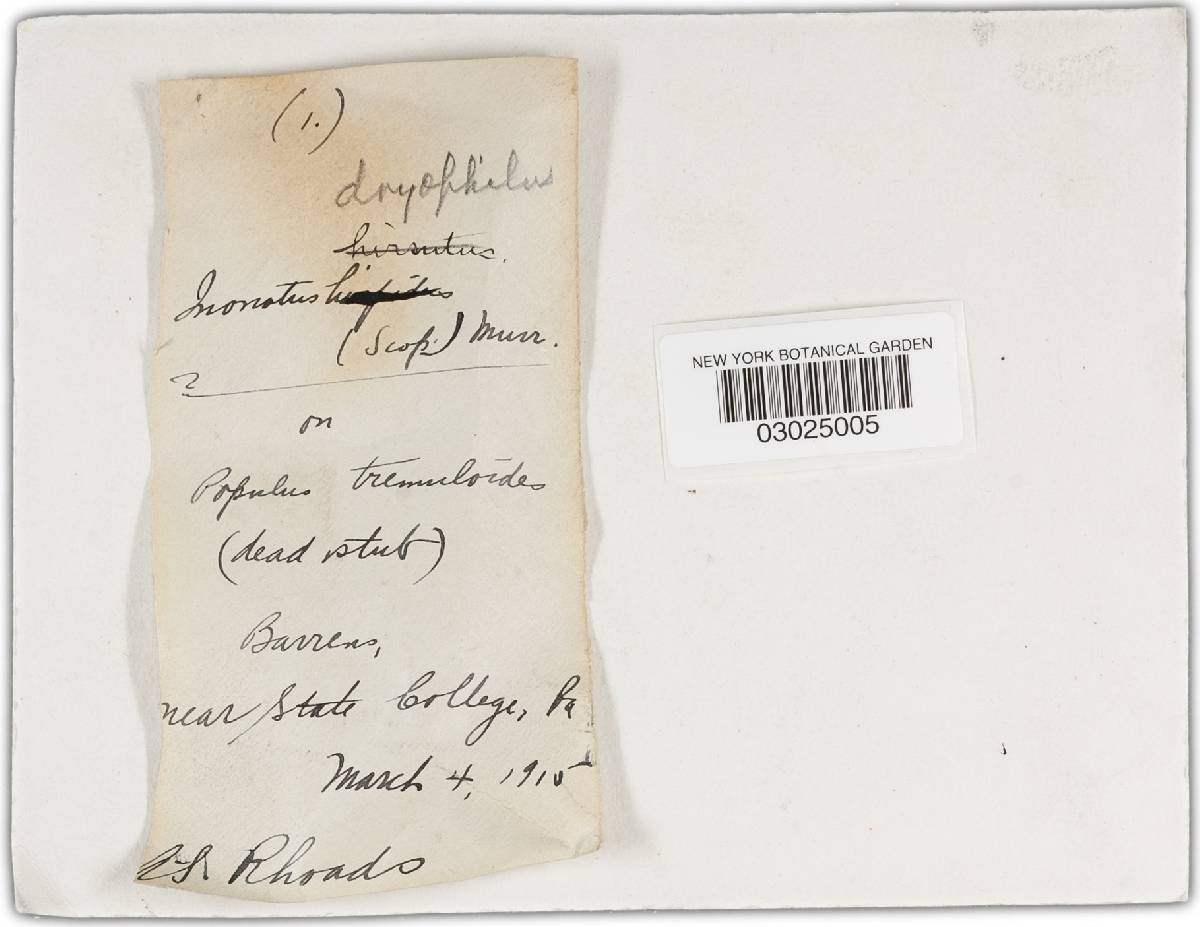 (1.)
dryophilus
hirsutus.
Inonotus
(Scop.) Murr.
?
on
Populus tremuloides
(dead stub)
Barrens,
near State College, Pa
March 4, 1915
Rhoads
NEW YORK BOTANICAL GARDEN
03025005